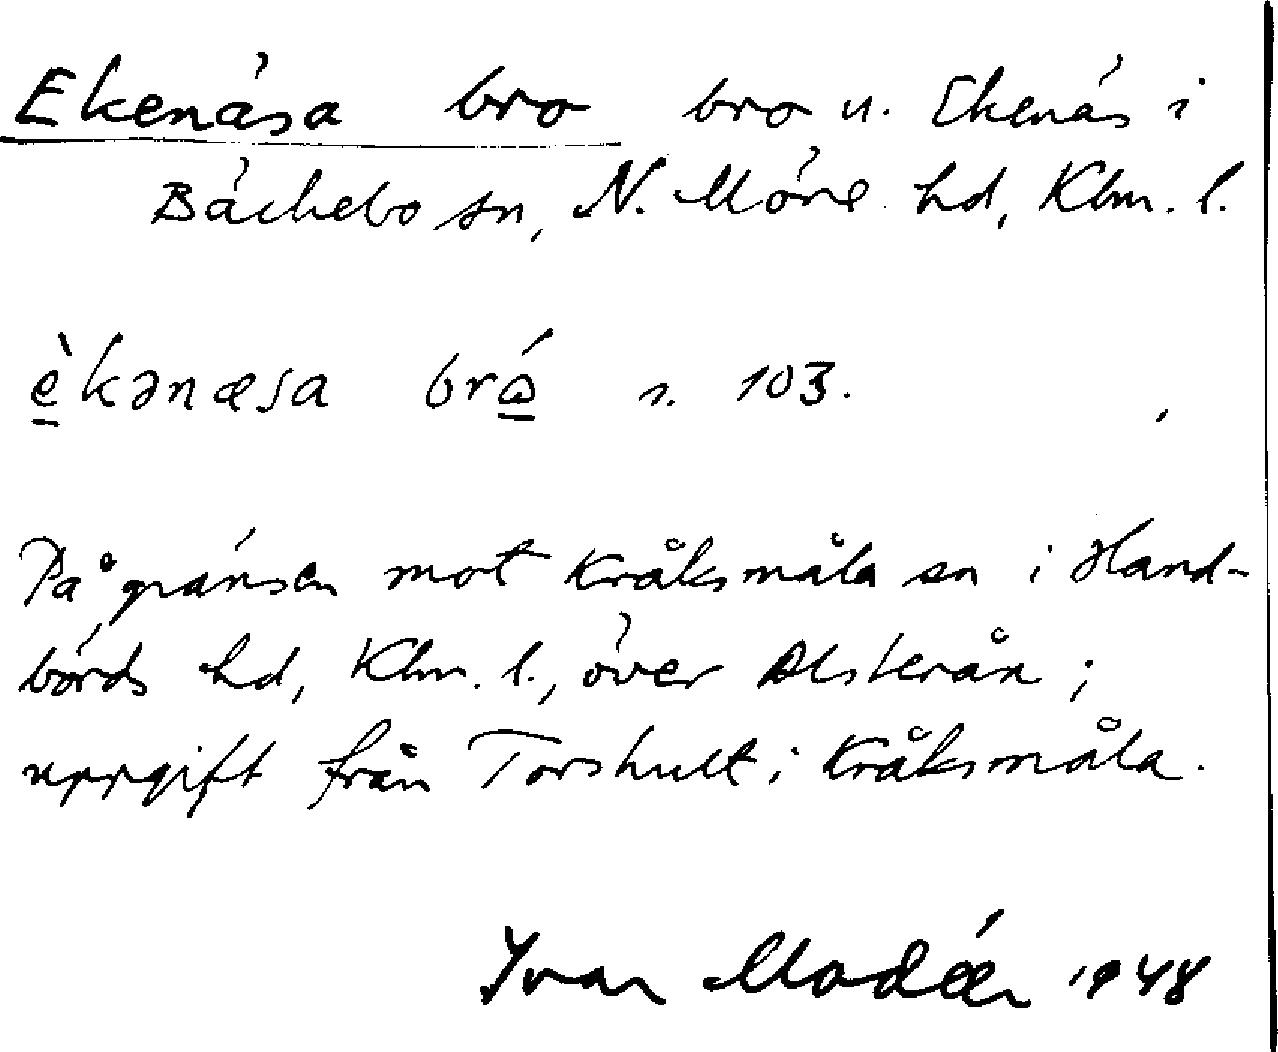 Ekenäsa bro bro u. Ekenäs i
Bäckebo sn, N. Möre hd, Klm. l.
è̱kənæsa brɷ̱́ s. 103.
På gränsen mot Kråksmåla sn i Hand-
börds hd, Klm. l., över Alsterån;
uppgift från Torshult i Kråksmåla.
Ivar Modéer 1948